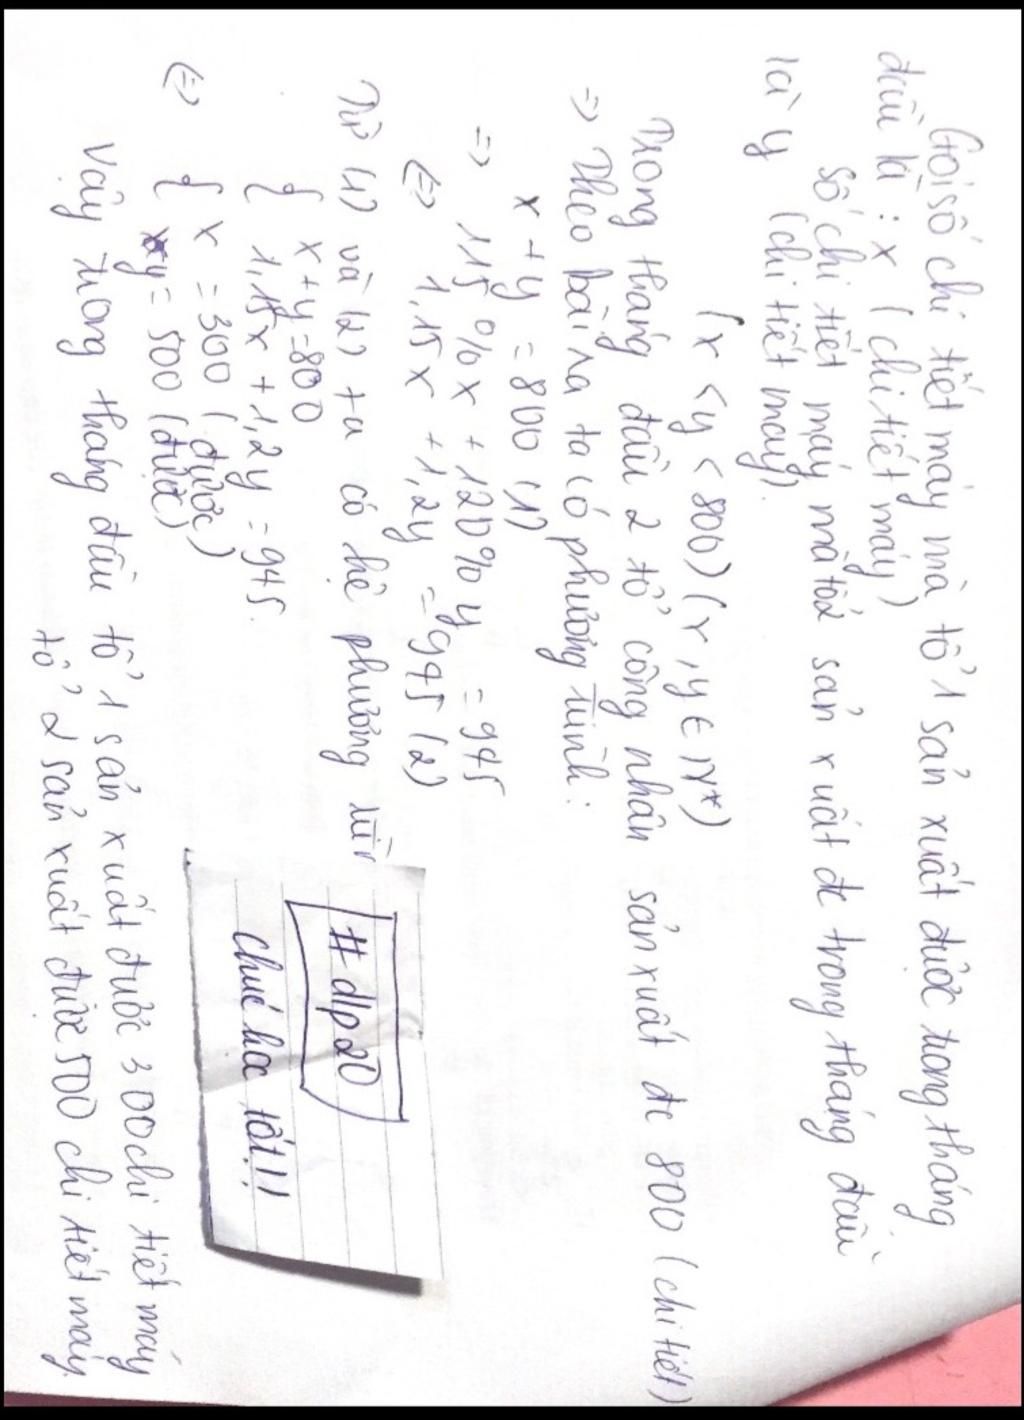 Gọi số chi tiết máy mà tổ 1 sản xuất được trong tháng
đầu là : x (chi tiết máy)
số chi tiết máy mà tổ 2 sản xuất đc trong tháng đầu
là y (chi tiết máy).
(x < y < 800) (x, y ∈ N*)
Trong tháng đầu 2 tổ công nhân sản xuất đc 800 (chi tiết)
=> Theo bài ra ta có phương trình :
x + y = 800 (1)
=> 115%x + 120%y = 945
<=> 1,15x + 1,2y = 945 (2)
Từ (1) và (2) ta có hệ phương trìn
{ x + y = 800
1,15x + 1,2y = 945.
<=> { x = 300 (được)
y = 500 (được)
Vậy trong tháng đầu tổ 1 sản xuất được 300 chi tiết máy
tổ 2 sản xuất được 500 chi tiết máy.
# dlp20
chúc học tốt!!